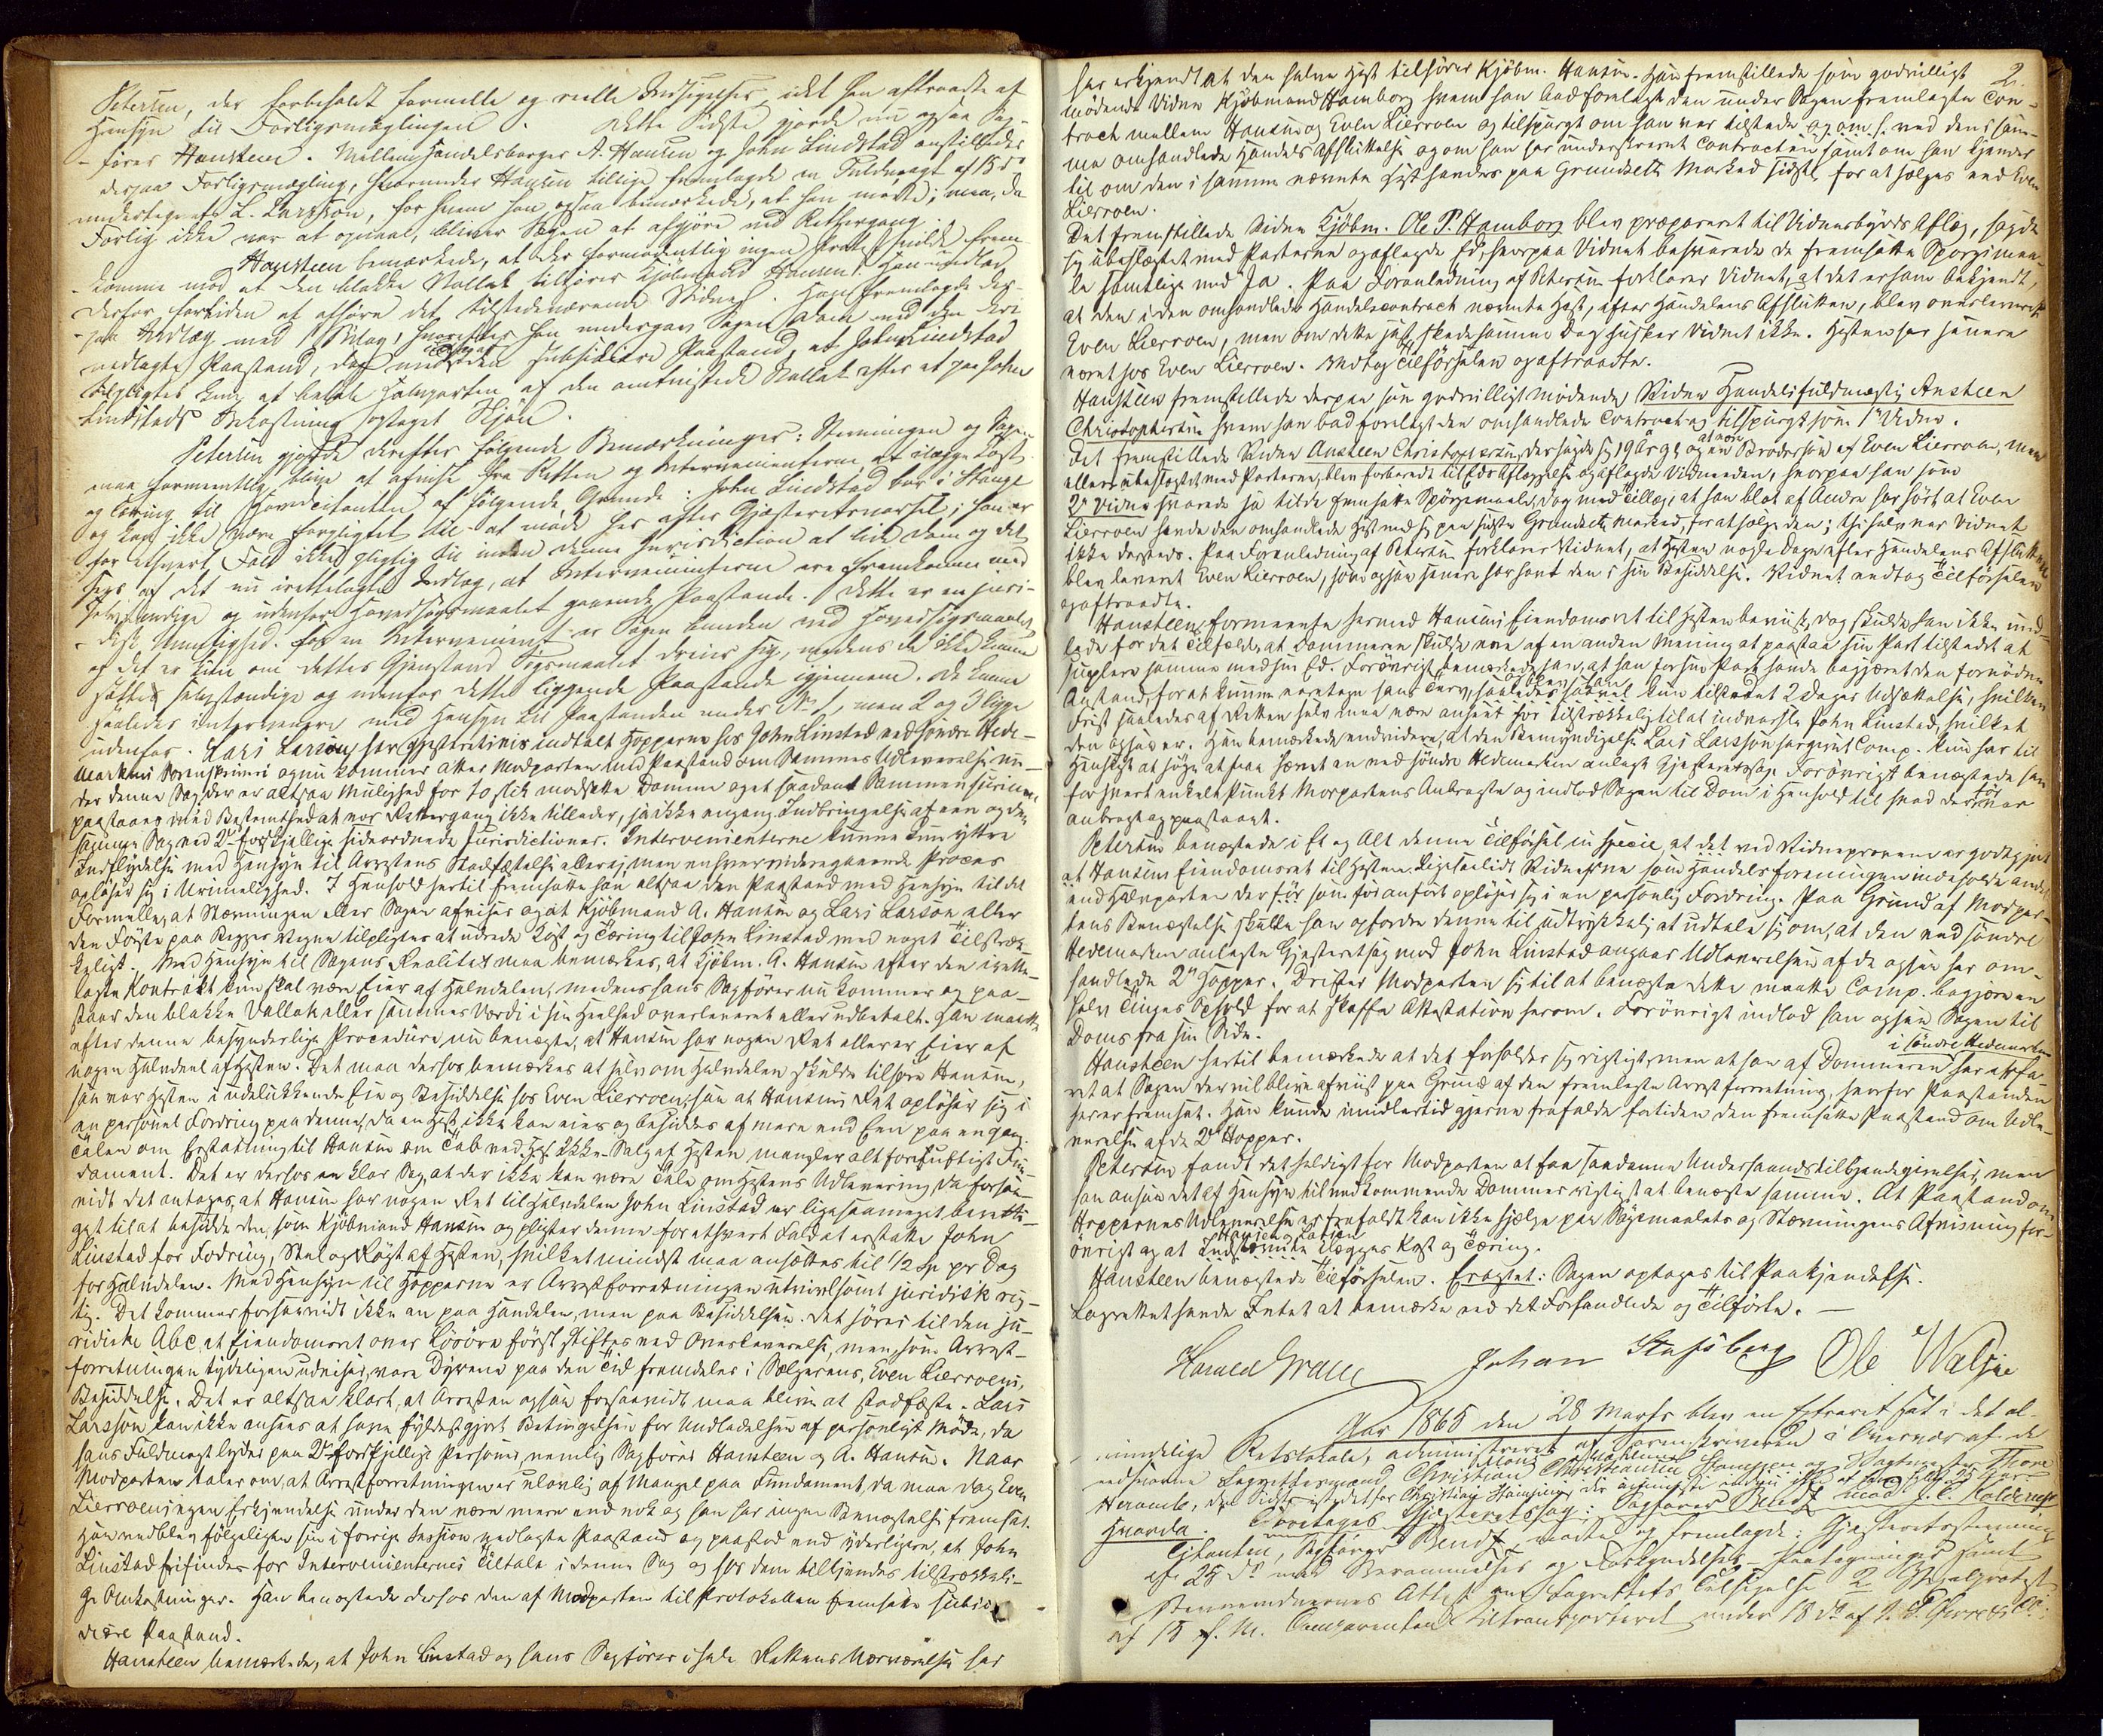 Petersen, der forbeholdt formelle og reelle Indsigelser, idet han aftraadte af
Hensyn til Forligsmæglingen. Dette sidste gjorde nu ogsaa Sag-
fører Hansteen. Mellem Handelsborger A. Hansen og John Lindstad anstilledes
derpaa Forligsmægling, hvorunder Hansen tillige fremlagde en Fuldmagt af 13 ds
undertegnet L. Larsson, for hvem han ogsaa bemærkede, at han mødte; men, da
Forlig ikke var at opnaa, bliver Sagen at afgjøre ved Rettergang.
Hansteen bemærkede, at der formodentlig ingen Tvivl skulde frem-
komme mod at den blakke Vallak tilhører Kjøbmand Hansen. Han undlod
derfor fortiden at afhøre det tilstedeværende Vidne. Han fremlagde der-
paa Indlæg med 1 Bilag, hvorefter han undergav Sagen Dom med den deri
nedlagte Paastand, dog med den subsidiære Paastand, at John Lindstad
tilpligtes kun at betale Halvparten af den omtvistede Vallak efter at paa John
Lindstads Bekostning optaget Skjøn.
Petersen gjorde derefter følgende Bemærkninger: Stevningen og Sagen
maa formentlig blive at afvise fra Retten og Intervenienterne at ilægge Kost
og Tæring til Hovedcitanten af følgende Grunde: John Lindstad bor i Stange
og kan ikke være forpligtet til at møde her efter Gjæsteretsvarsel; han er
for ethvert Fald ikke pligtig til inden denne Jurisdiction at lide Dom og det
sees af det nu irettelagte Indlæg, at Intervenienterne ere fremkomne med
selvstændige og udenfor Hovedsøgsmaalet gaaende Paastande. Dette er en juri-
disk Umulighed. For en Intervenient er Sagen bunden ved Hovedsøgsmaalet
og det er kun om dettes Gjenstand Søgsmaalet dreier sig, medens de ikke kunne
sætte selvstændige og udenfor dette liggende Paastande igjennem. De kunne
saaledes intervenere med Hensyn til Paastanden under No 1, men 2 og 3 ligge
udenfor. Lars Larson har gjæsteretsvis indtalt Hopperne hos John Linstad ved søndre Hede-
markens Sorenskriveri og nu kommer atter Modparten med Paastand om Sammes Udleverelse un-
der denne Sag, der er altsaa Mulighed for to stik modsatte Domme og et saadant Sammensurium
paastaaes med Bestemthed at vor Rettergang ikke tillader, ja ikke engang Indbringelse af een og den
samme Sag ved 2de forskjellige sideordnede Jurisdictioner. Intervenienterne kunne kun yttre
Indflydelse med Hensyn til Arrestens Stadfæstelse eller ej, men enhver videregaaende Proces
opløser sig i Urimelighed. I Henhold hertil fremsatte han altsaa den Paastand med Hensyn til det
Formelle, at Stævningen eller Sagen afvises og at Kjøbmand A. Hansen og Lars Larson eller
den Første paa Begges Vegne tilpligtes at udrede Kost og Tæring til John Linstad med noget Tilstræk-
keligt. Med Hensyn til Sagens Realitet maa bemærkes, at Kjøbm. A. Hansen efter den irette-
lagte Kontrakt kun skal være Eier af Halvdelen, medens hans Sagfører nu kommer og paa-
staar den blakke Vallak eller sammes Værdi i sin Heelhed overleveret eller udbetalt. Han maatte
efter denne besynderlige Procedure nu benægte, at Hansen har nogen Ret eller er Eier af
nogen Halvdeel af Hesten. Det maa derhos bemærkes at selv om Halvdelen skulde tilhøre Hansen,
saa var Hesten i udelukkende Eie og Besiddelse hos Even Lierroen, saa at Hansens Ret opløser sig i
en personel Fordring paa denne, da en Hest ikke kan eies og besiddes af mere end Een paa engang.
Talen om Erstatning til Hansen om Tab ved Hest ikke Salg af Hesten mangler alt fornuftigt Fun-
dament. Det er derhos en klar Sag, at der ikke kan være Tale om Hestens Udlevering, da forsaa-
vidt det antages, at Hansen har nogen Ret til Halvdelen John Linstad er ligesaameget beretti-
get til at besidde den, som Kjøbmand Hansen og pligter denne for ethvert Fald at erstatte John
Linstad for Fodring, Stel og Røgt af Hesten, hvilket mindst maa ansættes til 1/2 Sp pr Dag
for Halvdelen. Med Hensyn til Hopperne er Arrestforretningen utvivlsomt juridisk rig-
tig. Det kommer forsaavidt ikke an paa Handelen, men paa Besiddelsen. Det hører til den ju-
ridiske Abc, at Eiendomsret over Løsøre først stiftes ved Overleverelse, men, som Arrest-
forretningen tydeligen udviser, vare Dyrene paa den Tid fremdeles i Sælgerens, Even Lierroens,
Besiddelse. Det er altsaa klart, at Arresten ogsaa forsaavidt maa blive at stadfæste. Lars
Larsson kan ikke ansees at have fyldestgjort Betingelsen for Undladelsen af personligt Møde, da
hans Fuldmagt lyder paa 2de forskjellige Personer, nemlig Sagfører Hansteen og A. Hansen. Naar
Modparten taler om, at Arrestforretningen er ulovlig af Mangel paa Fundament, da maa dog Even
Lierroens egen Erkjendelse under den være mere end nok og han har ingen Benægtelse fremsat.
Han vedblev følgeligen sin i forrige Session nedlagte Paastand og paastod end yderligere, at John
Linstad frifindes for Intervenienternes Tiltale i denne Sag og hos dem tilkjendes tilstrækkeli-
ge Omkostninger. Han benægtede derhos den af Modparten til Protokollen fremsatte subsi-
diære Paastand.
Hansteen bemærkede, at John Linstad og hans Sagfører i hele Rettens Nærværelse har
2.
har erkjendt at den halve Hest tilhører Kjøbm. Hansen. Han fremstillede som godvilligt
mødende Vidne Kjøbmand Hamborg hvem han bad forelagt den under Sagen fremlagte Con-
tract mellem Hansen og Even Lierroen og tilspurgt om han var tilstede og om f. ved den i sam-
me omhandlede Handels Afsluttelse og om han har underskrevet Contracten samt om han kjender
til om den i samme nævnte Hest havdes paa Grundsett Marked sidstl. for at sælges ved Even
Lierroen.
Det fremstillede Vidne Kjøbm. Ole P. Hamborg blev præpareret til Vidnesbyrds Aflæg, sagde
sig ubeslægtet med Parterne og aflagde Ed, hvorpaa Vidnet besvarede de fremsatte Spørgsmaa-
le samtlige med Ja. Paa Foranledning af Petersen forklarer Vidnet, at det er ham bekjendt,
at den i den omhandlede Handelscontract nævnte Hest, efter Handelens Afslutten, blev overleveret
Even Lierroen, men om dette just skede samme Dag husker Vidnet ikke. Hesten har senere
været hos Even Lierroen. Vedtog Tilførselen og aftraadte.
Hansteen fremstillede derpaa som godvilligt mødende Vidne Handelsfuldmægtig Ansteen
Christophersen hvem han bad forelagt den omhandlede Contract og tilspurgt som 1ste Vidne.
Det fremstillede Vidne Ansteen Christophersen, der sagde sig 19 Aar gl. og at være en Brodersøn af Even Lierroen, men
ellers ubeslægtet med Parterne, blev forberedt til Eds Aflæggelse og aflagde Vidneeden, hvorpaa han som
2det Vidne svarede ja til de fremsatte Spørgsmaale, dog med Tillæg, at han blot af Andre har hørt at Even
Lierroen havde den omhandlede Hest med sig paa sidste Grundsett Marked, for at sælge den; thi selv var Vidnet
ikke dersteds. Paa Foranledning af Petersen forklarer Vidnet, at Hesten nogle Dage efter Handelens Afslutten
blev leveret Even Lierroen, som ogsaa senere har havt den i sin Besiddelse. Vidnet vedtog Tilførselen
og aftraadte.
Hansteen formeente hermed Hansens Eiendomsret til Hesten beviist, dog skulde han ikke und-
lade for det Tilfælde, at Dommeren skulde være af en anden Mening at paastaa sin Part tilstedt at
supplere samme med sin Ed. Forøvrigt bemærkede han, at han for sin Part havde begjæret den fornødne
Anstand, for at kunne varetage hans Tarv, saaledes blev han kun tilstedet 2 Dages Udsættelse, hvilken
Frist saaledes af Retten selv maa være anseet for tilstrækkelig til at indvarsle John Linstad, hvilket
den ogsaa er. Han bemærkede endvidere, at den Bemyndigelse Lars Larsson har givet Comp. kun har til
Hensigt at søge at faa hævet en ved søndre Hedemarken anlagt Gjæsteretssag. Forøvrigt benægtede han
for hvert enkelt Punkt Modpartens Anbragte og indlod Sagen til Dom i Henhold til hvad derfor var
anbragt og paastaaet.
Petersen benægtede i Et og Alt denne Tilførsel in specie, at det ved Vidneprovene er godtgjort
at Hansens Eiendomsret til Hesten. Ligesaalidt Vidnerne som Handelsforeningen indeholde andet
end Halvparten der før som før anført opløser sig i en personlig Fordring. Paa Grund af Modpar-
tens Benægtelse skulle han opfordre denne til udtrykkelig at udtale sig om, at den ved søndre
Hedemarken anlagte Gjæsteretssag mod John Linstad angaar Udleverelsen af de ogsaa her om-
handlede 2de Hopper. Drister Modparten sig til at benægte dette maatte Comp. begjære en
halv Times Ophold for at skaffe Attestation herom. Forøvrigt indlod han ogsaa Sagen til
Doms fra sin Side.
Hansteen hertil bemærkede at det forholder sig rigtigt, men at han af Dommeren i søndre Hedemarken har erfa-
ret at Sagen der vil blive afviist paa Grund af den fremlagte Arrestforretning, hvorfor Paastanden
her er fremsat. Han kunde imidlertid gjerne frafalde fortiden den fremsatte Paastand om Udle-
verelse af de 2de Hopper.
Petersen fandt det heldigt for Modparten at faa saadanne Underhaandstilkjendegivelser, men
han ansaa det af Hensyn til vedkommende Dommer rigtigst at benægte samme. At Paastand om
Hoppernes Udleverelse er frafaldt kan ikke hjælpe paa Søgsmaalets og Stævningens Afvisning for-
øvrigt og at Hansen og Larsen ilægges Kost og Tæring.
Hansteen benægtede Tilførselen. Eragtet: Sagen optages til Paakjendelse.
Lagrettet havde Intet at bemærke ved det Forhandlede og Tilførte. —
Harald Graae Johan Stensberg Ole Walsjøe
Aar 1865 den 28 Marts blev en Extraret sat i det al-
mindelige Retslokale, administreret af Sorenskriveren i Overvær af de
edsvorne Lagrettesmænd, Christian Christiansen Stampen og Wagtmester Thore
Aramb, den Sidste istedetfor Christian Hansen, der anmeldte endnu ikke at have fyldt 25 Aar
Hvorda Foretoges Gjæsteretssag: Sagfører Bendz mod J. C. Koldenes
Citanten, Sagfører Bendz, mødte og fremlagde: Gjæsteretsstevning
af 25 ds med Berammelses og Forkyndelses-Paategninger samt
Stevnevidnernes Attest om Lagrettets Tilsigelse 2 Vexelprotest
af 13 f. M. Comparenten tiltransporteret under 18 ds af